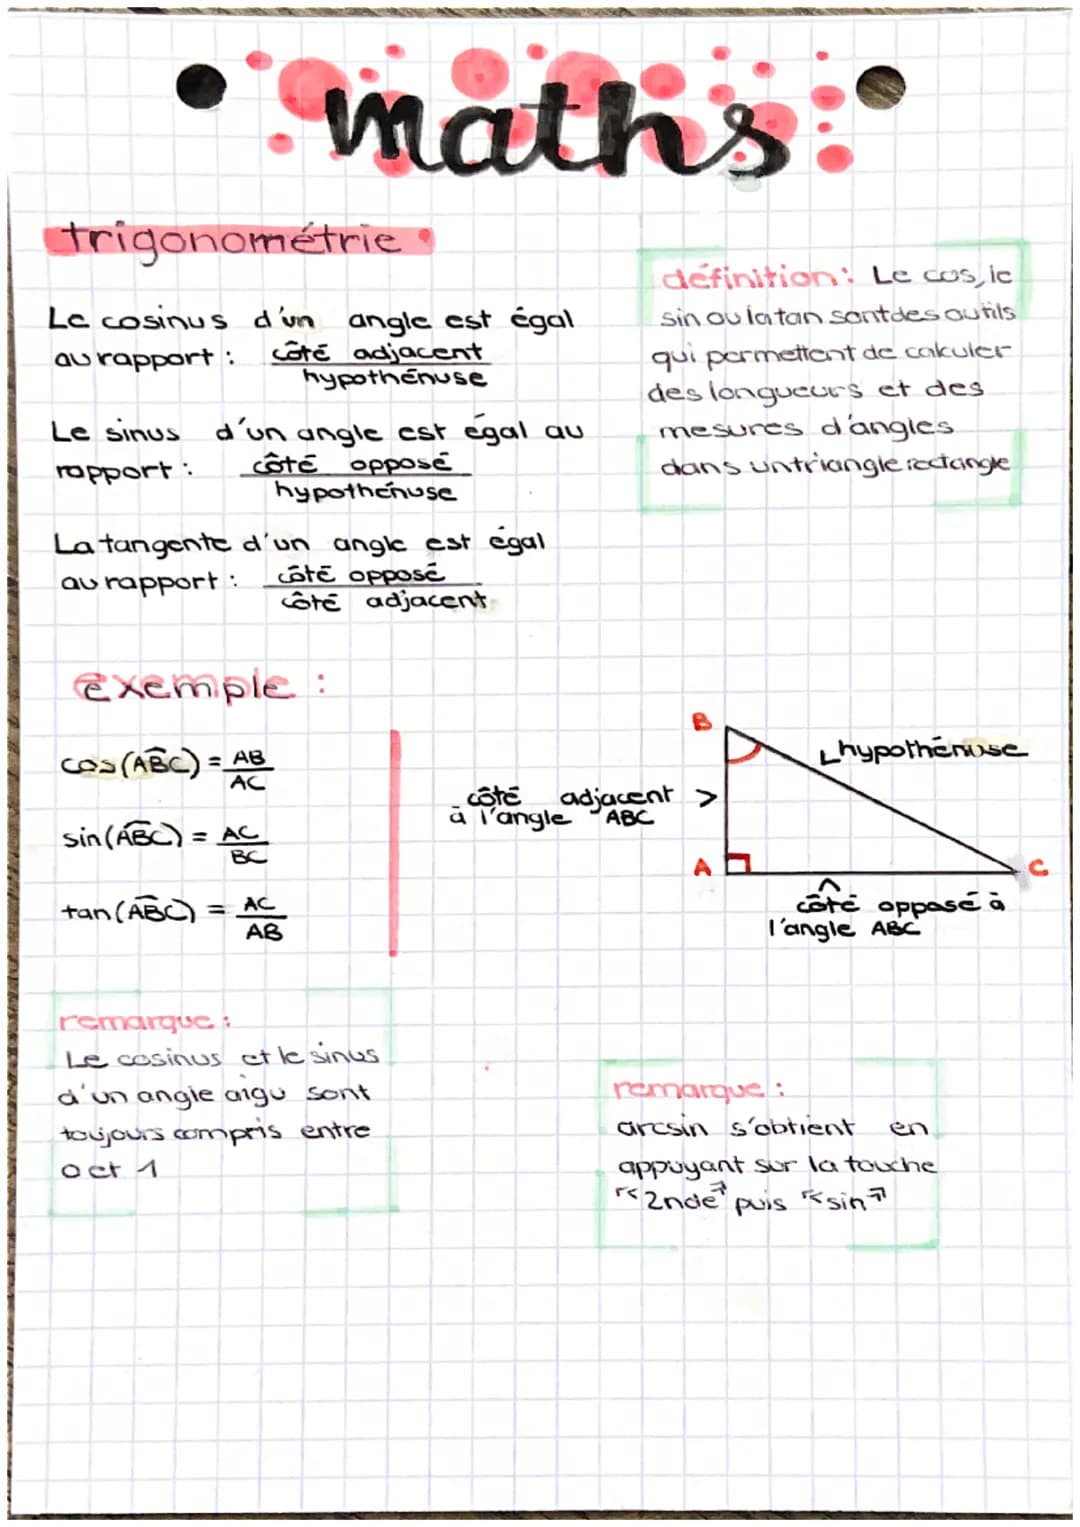 maths
trigonométrie
Le cosinus d'un angle est égal
au rapport : côté adjacent
hypothénuse
Le sinus d'un angle est égal au
rapport : côté opposé
hypothénuse
La tangente d'un angle est égal
au rapport : côté opposé
côté adjacent
définition : Le cos, le
sin ou la tan sont des outils
qui permettent de calculer
des longueurs et des
mesures d'angles
dans un triangle rectangle
exemple :
cos(ABC) = AB
AC
sin(ABC) = AC
BC
tan(ABC) = AC
AB
B
hypothénuse
côté adjacent >
à l'angle ABC
A
C
côté opposé à
l'angle ABC
remarque :
Le cosinus et le sinus
d'un angle aigu sont
toujours compris entre
0 et 1
remarque :
arcsin s'obtient en
appuyant sur la touche
"2nde" puis "sin"